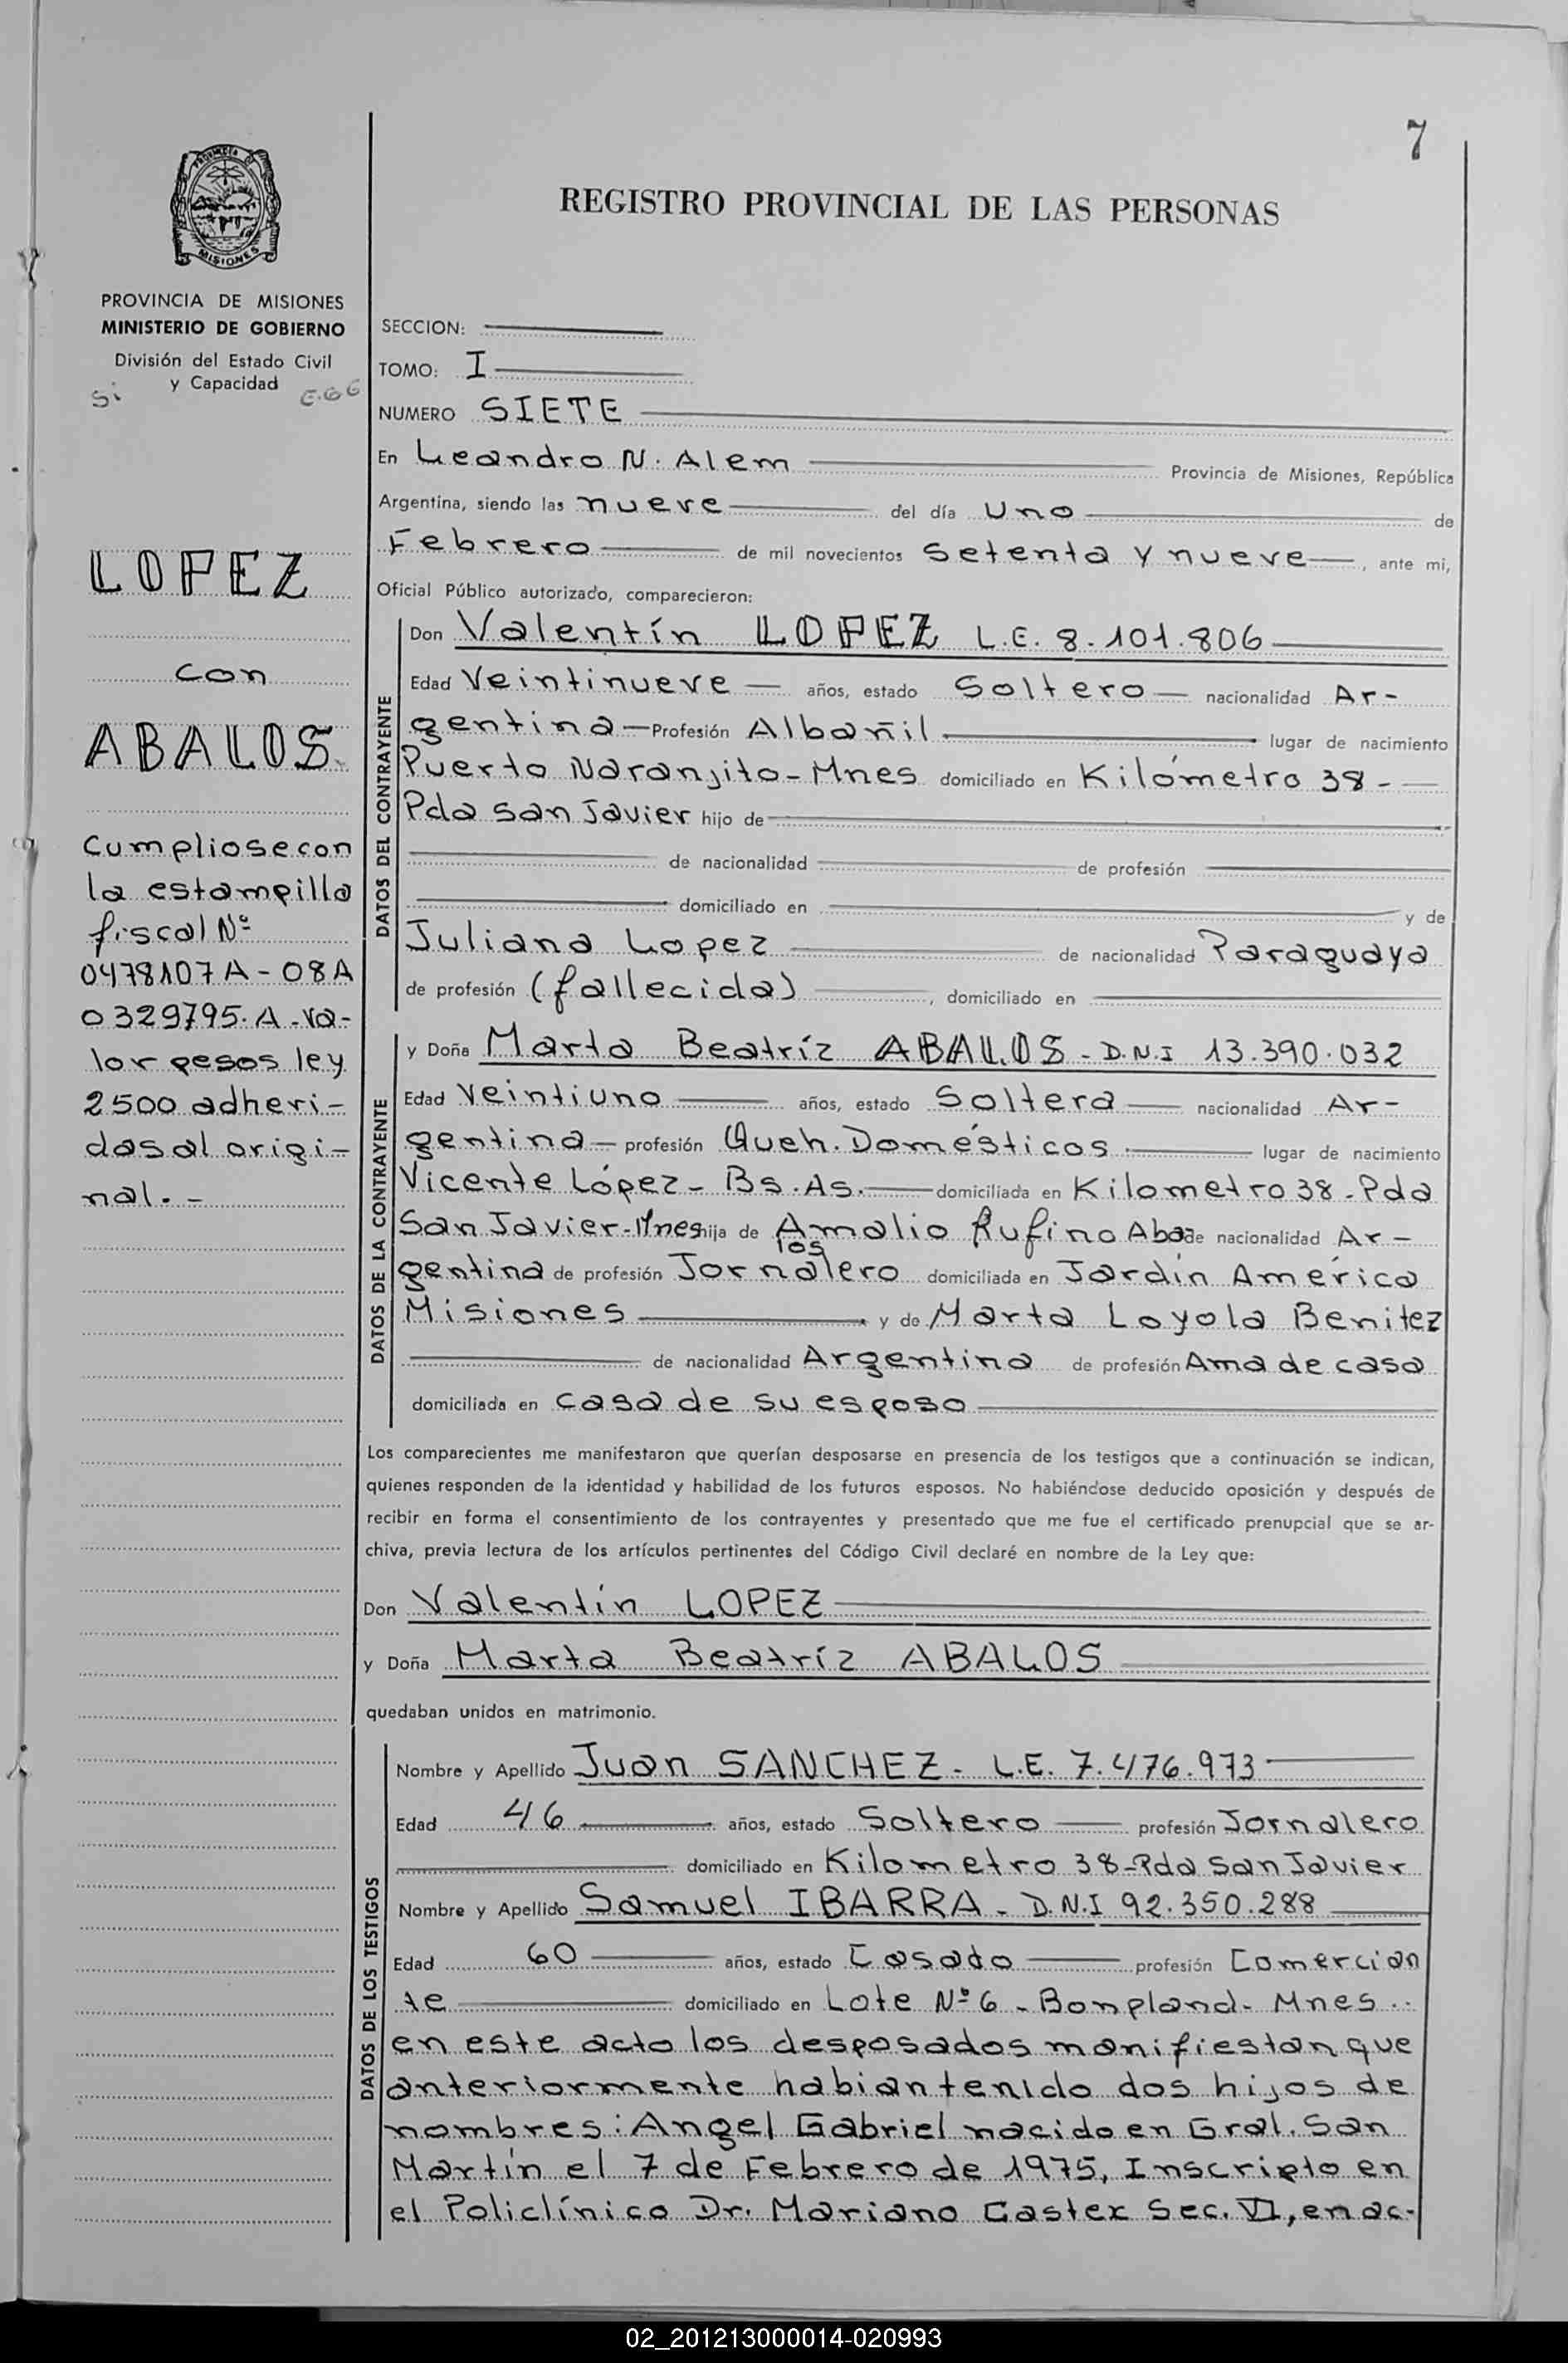 7
REGISTRO PROVINCIAL DE LAS PERSONAS
PROVINCIA DE MISIONES
MISIONES
PROVINCIA DE MISIONES
MINISTERIO DE GOBIERNO
División del Estado Civil
y Capacidad
Si
LOPEZ
con
ABALOS
Cumpliose con
la estampilla
fiscal Nº
0478107 A - 08A
0329795. A. va-
lor pesos ley
2500 adheri-
das al origi-
nal. -
SECCION:
TOMO: I
NUMERO SIETE
En Leandro N. Alem Provincia de Misiones, República
Argentina, siendo las nueve del día Uno de
Febrero de mil novecientos setenta y nueve, ante mi,
Oficial Público autorizado, comparecieron:
DATOS DEL CONTRAYENTE
Don Valentín LOPEZ L.E. 8.101.806
Edad Veintinueve años, estado Soltero nacionalidad Ar-
gentina Profesión Albañil lugar de nacimiento
Puerto Naranjito - Mnes domiciliado en Kilómetro 38 -
Pda San Javier hijo de
de nacionalidad de profesión
domiciliado en y de
Juliana Lopez de nacionalidad Paraguaya
de profesión (fallecida), domiciliado en
DATOS DE LA CONTRAYENTE
y Doña Marta Beatríz ABALOS - D.N.I 13.390.032
Edad Veintiuno años, estado Soltera nacionalidad Ar-
gentina profesión Queh. Domésticos lugar de nacimiento
Vicente López - Bs. As. domiciliada en Kilometro 38 - Pda
San Javier - Mnes hija de Amalio Rufino Aba de nacionalidad Ar-
los
gentina de profesión Jornalero domiciliada en Jardín América
Misiones y de Marta Loyola Benitez
de nacionalidad Argentina de profesión Ama de casa
domiciliada en casa de su esposo
Los comparecientes me manifestaron que querían desposarse en presencia de los testigos que a continuación se indican,
quienes responden de la identidad y habilidad de los futuros esposos. No habiéndose deducido oposición y después de
recibir en forma el consentimiento de los contrayentes y presentado que me fue el certificado prenupcial que se ar-
chiva, previa lectura de los artículos pertinentes del Código Civil declaré en nombre de la Ley que:
Don Valentín LOPEZ
y Doña Marta Beatríz ABALOS
quedaban unidos en matrimonio.
DATOS DE LOS TESTIGOS
Nombre y Apellido Juan SANCHEZ - L.E. 7.476.973
Edad 46 años, estado Soltero profesión Jornalero
domiciliado en Kilometro 38 - Pda San Javier
Nombre y Apellido Samuel IBARRA - D.N.I 92.350.288
Edad 60 años, estado Casado profesión Comercian
te domiciliado en Lote Nº 6 - Bonpland - Mnes..
en este acto los desposados manifiestan que
anteriormente habian tenido dos hijos de
nombres: Angel Gabriel nacido en Gral. San
Martín el 7 de Febrero de 1975, Inscripto en
el Policlínico Dr. Mariano Castex Sec. VI, en ac-
02_201213000014-020993